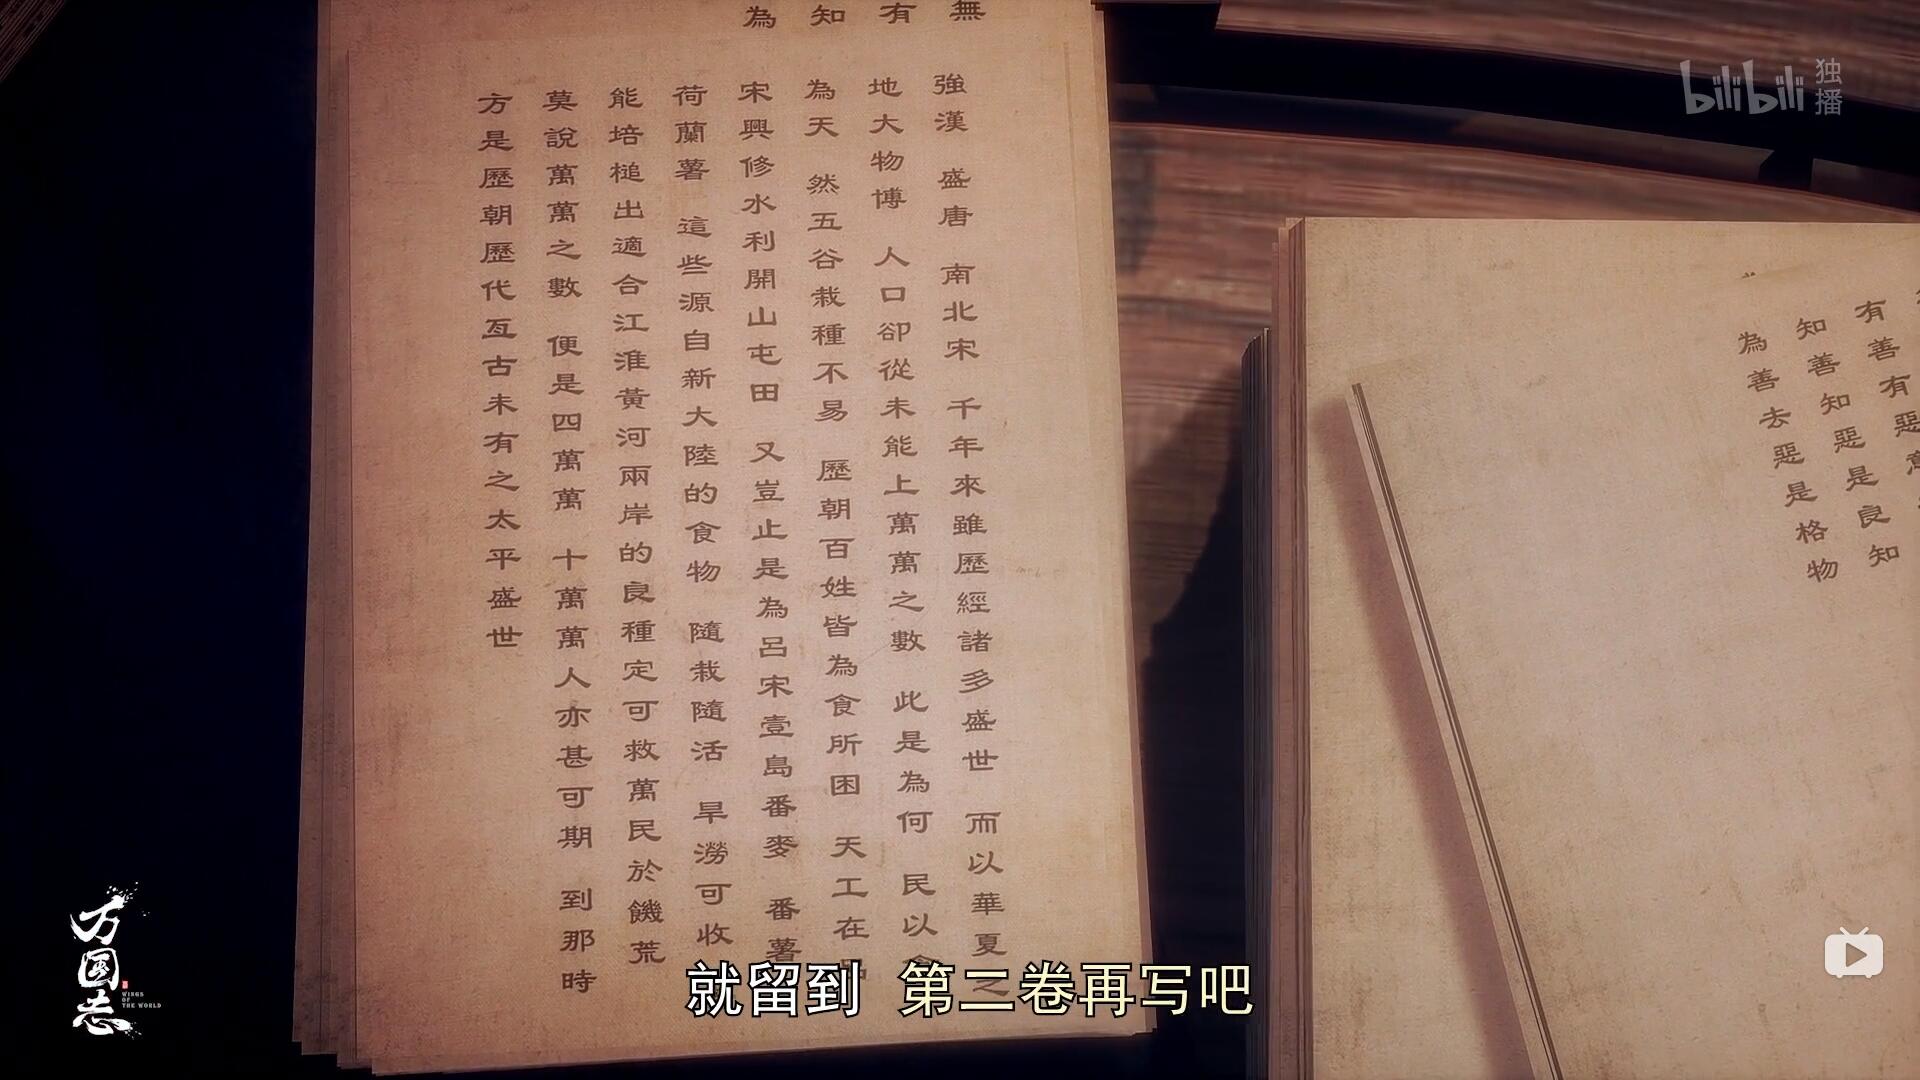 無
有
知
為
強漢 盛唐 南北宋 千年來雖歷經諸多盛世 而以華夏之
地大物博 人口卻從未能上萬萬之數 此是為何 民以食
為天 然五谷栽種不易 歷朝百姓皆為食所困 天工在
宋興修水利開山屯田 又豈止是為呂宋壹島番麥 番薯
荷蘭薯 這些源自新大陸的食物 隨栽隨活 旱澇可收
能培槌出適合江淮黃河兩岸的良種定可救萬民於饑荒
莫說萬萬之數 便是四萬萬 十萬萬人亦甚可期 到那時
方是歷朝歷代亙古未有之太平盛世
有善有惡
知善知惡是良知
為善去惡是格物
bilibili 独播
万国志
WINGS OF THE WORLD
就留到 第二卷再写吧